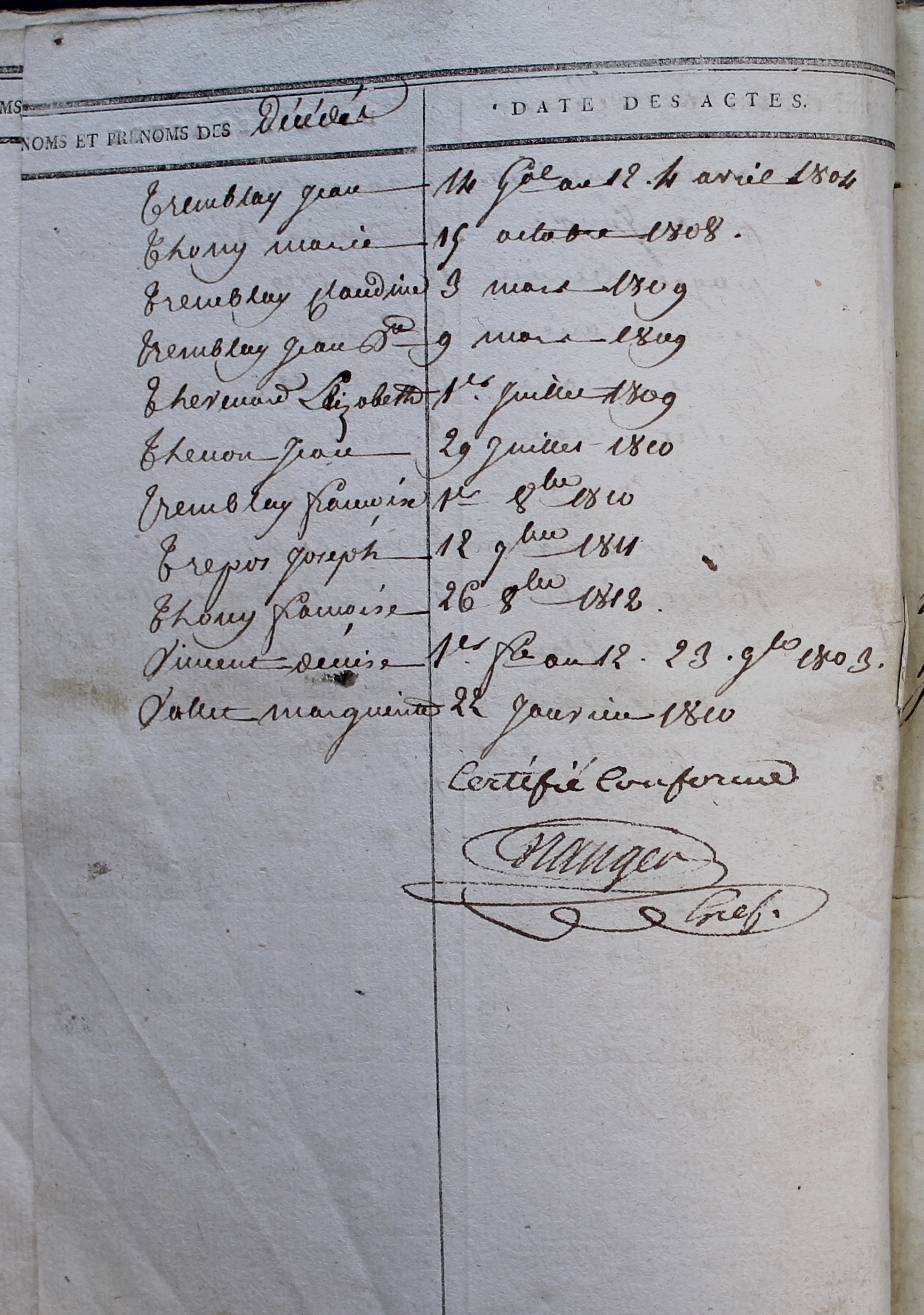 MS
NOMS ET PRÉNOMS DES Décédés
DATE DES ACTES.
Tremblay Jean 14 Gal an 12. 4 avril 1804
Thony marie 15 octobre 1808.
Tremblay Claudine 3 mars 1809
Tremblay Jean Bte 9 mars 1809
Thevenard Elizabeth 1er Juillet 1809
Thenon Jean 29 Juillet 1810
Tremblay françoise 1er 8bre 1810
Trepos Joseph 12 9bre 1811
Thony françoise 26 8bre 1812.
Vincent denise 1er fre an 12. 23. 9bre 1803.
Vallet marguerite 22 Janvier 1810
Certifié Conforme
Gref.